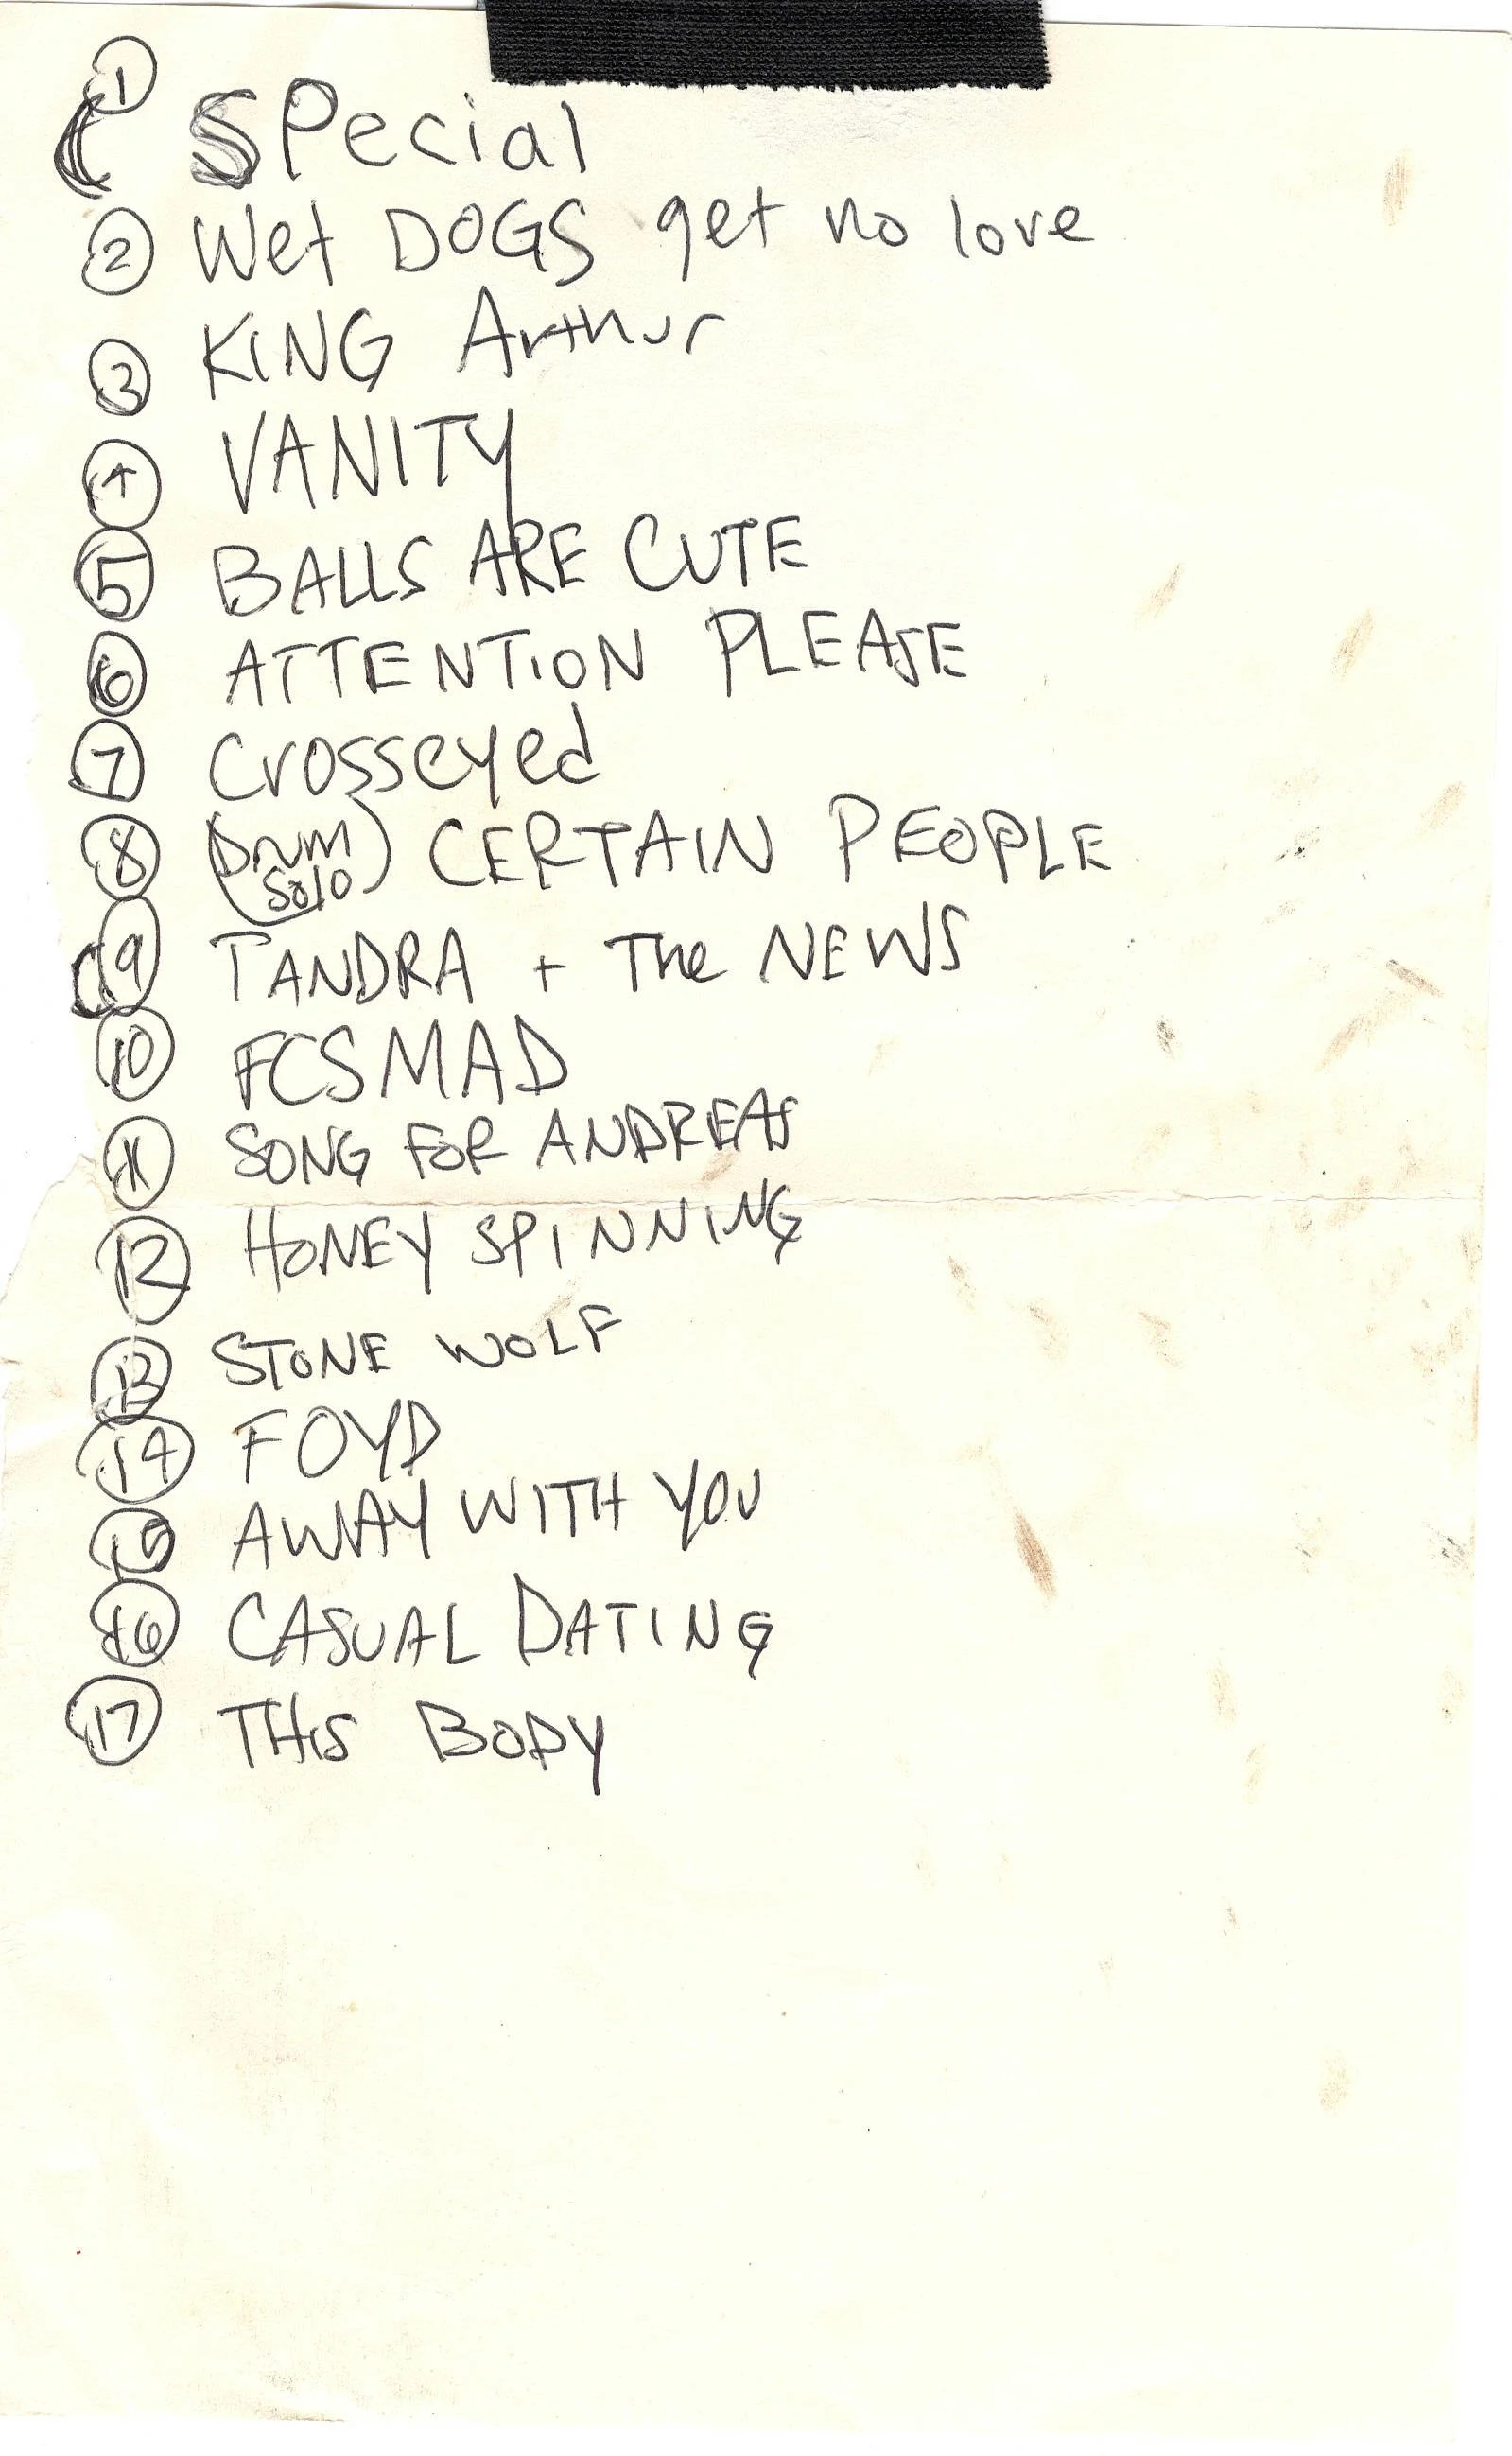 1 SPecial
2 Wet DOGS get no love
3 KING Arthur
4 VANITY
5 BALLS ARE CUTE
6 ATTENTION PLEASE
7 Crosseyed
8 (Drum Solo) CERTAIN PEOPLE
9 TANDRA + The NEWS
10 FCSMAD
11 SONG FOR ANDREAS
12 HONEY SPINNING
13 STONE WOLF
14 FOYD
15 AWAY WITH YOU
16 CASUAL DATING
17 THIS BODY